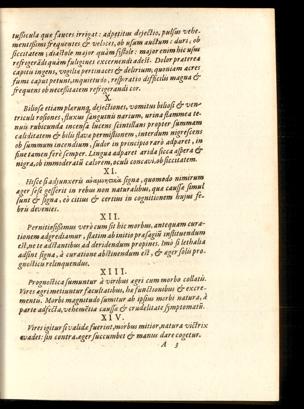 tussicula quæ fauces irrigat: adpetitus dejectio, pulsus vehe-
mentissimi frequentes & veloces, ob usum auctum: duri, ob
siccitatem; diastole major quàm sistole: major enim hic usus
refrigerādi quàm fuligines excernendi adest. Dolor præterea
capitis ingens, vigiliæ pertinaces & delirium, quoniam acres
fumi caput petunt, inquietudo, respiratio difficilis magna &
frequens ob necessitatem refrigerandi cor.
X.
Biliosæ etiam plerunq; dejectiones, vomitus biliosi & ven-
triculi rosiones, fluxus sanguinis narium, urina flammea te-
nuis rubicunda incensa lucens scintillans propter summam
caliditatem & bilis flavæ permistionem, interdum nigrescens
ob summum incendium, sudor in principio rarò adparet, in
fine tamen ferè semper. Lingua adparet arida sicca aspera &
nigra, ob immoderatū calorem, oculi concavi, ob siccitatem.
XI.
Hisce si adjunxeris signa, quomodo nimirum
æger sese gesserit in rebus non naturalibus, quæ caussæ simul
sunt & signa, eò citius & certius in cognitionem hujus fe-
bris devenies.
XII.
Pernitiosissimus verò cum sit hic morbus, antequam cura-
tionem adgrediamur, statim ab initio præsagiū instituendum
est, ne te adstantibus ad deridendum propines. Imò si lethalia
adsint signa, à curatione abstinendum est, & æger soli pro-
gnostico relinquendus.
XIII.
Prognostica sumuntur à viribus ægri cum morbo collatis.
Vires ægri metiuntur facultatibus, ha functionibus & excre-
mentis. Morbi magnitudo sumitur ab ipsius morbi natura, à
parte adfecta, vehemētia caussæ & crudelitate symptomatū.
XIV.
Vires igitur si validæ fuerint, morbus mitior, natura victrix
evadet: sin contra æger succumbet & manus dare cogetur.
A 3